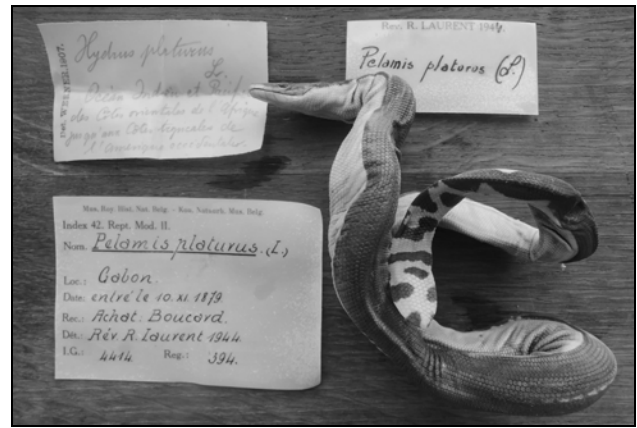 Det. WERNER, 1907.
Hydrus platurus
L.
Océan Indien et Pacif
des Côtes orientales de l'Afrique
jusqu'aux Côtes tropicales de
l'Amérique occidentale
Rev. R. LAURENT 1944.
Pelamis platurus (L.)
Mus. Roy. Hist. Nat. Belg. - Kon. Natuurk. Mus. Belg.
Index 42. Rept. Mod. II.
Nom. Pelamis platurus. (L.)
Loc.: Gabon.
Date: entré le 10. XI. 1879.
Rec.: Achat: Boucard.
Dét.: Rév. R. Laurent 1944.
I.G.: 4414 Reg.: 394.